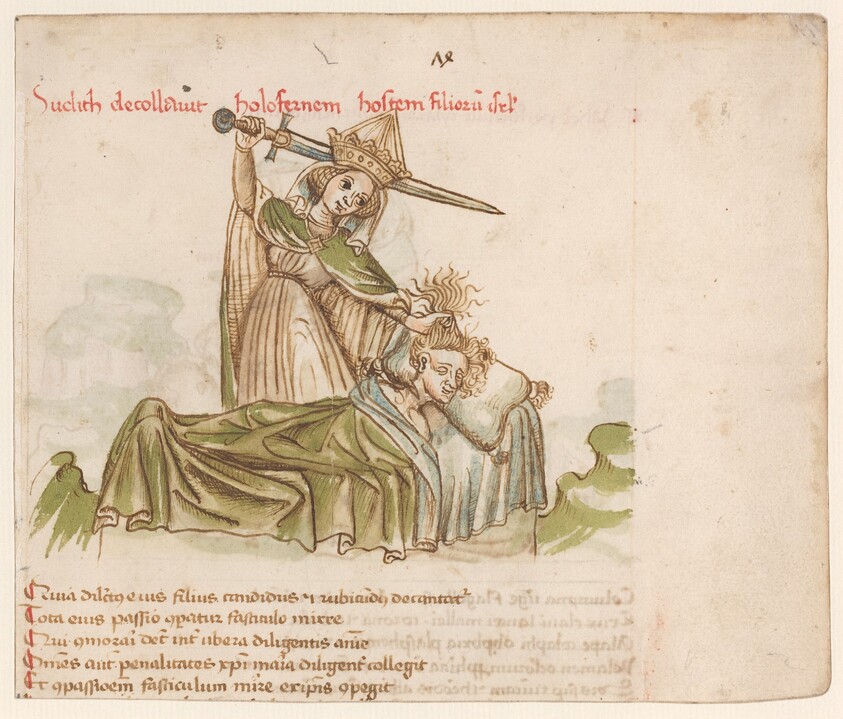 Judith decollauit holofernem hostem filiorū isrl'
Quia dilcūs eius filius candidus ⁊ rubicūdus decantatr
Tota eius passio ꝯparatur fasciculo mirre
Qui ꝯmorari debet intͬ ubera diligentis aīe
Om̄es aūt penalitates xp̄i maria diligenter collegit
Et ꝯpassioēm fasciculum mirre ex ip̄is ꝯpegit